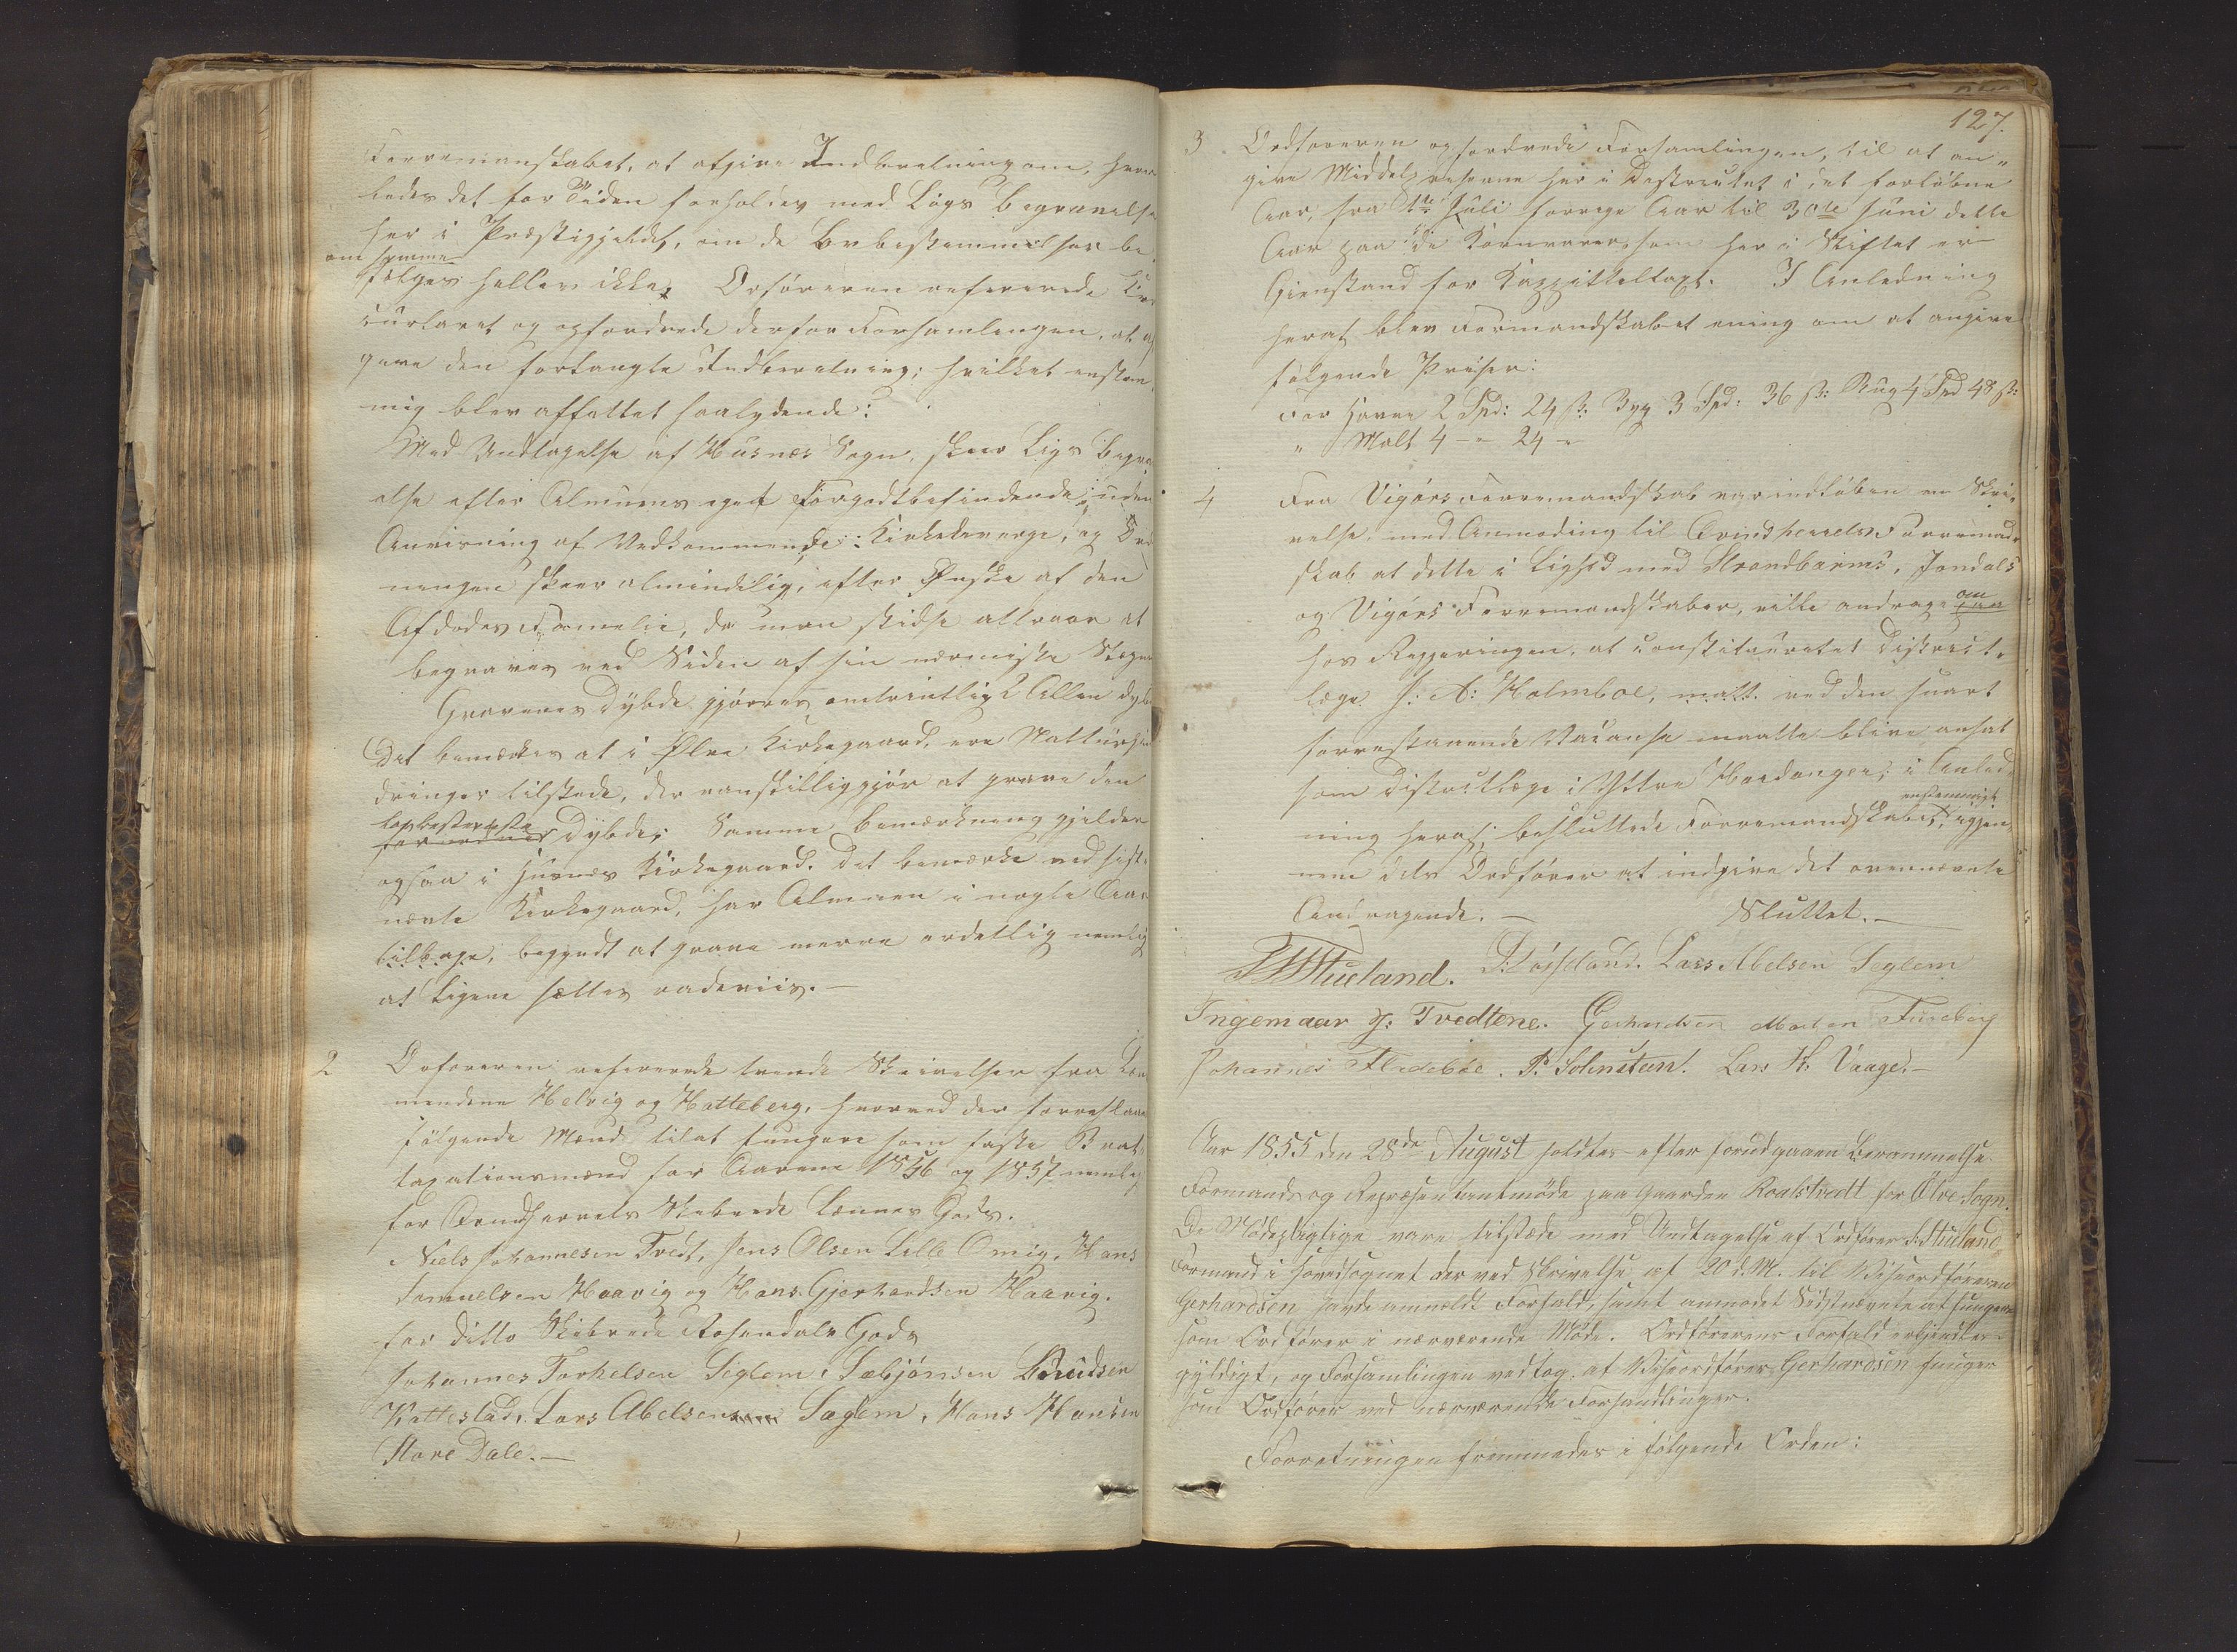 Forremanskabet, at afgive Indberetning om, hvor
ledes det for Tiden forholdes med Liigs Begravelse
her i Præstegjeldet, om de Lovbestemmelser be¬
om samme
følges heller ikke; Orføreren refererede Cir
curlæret og opfordrede derfor Forsamlingen, at af
give den forlangte Indberetning; hvilket enstem¬
mig blev affattet saalydende:
Med Undtagelse af Husnes Sogn, skeer Ligs Begra
else efter Almuens eget Forgodtbefindende uden
Anvisning af Vedkommende: Kirkeværge, og Ord
ningen skeer almindelig, efter Ønske af den
Afdødes Familie, da man skidse attraar at
begraves ved Siden af sin nærmeste Slægt
Gravenes Dybde gjøres omtrentlig 2 Allen dyb
Det bemærkes at i Ølve Kirkegaard, ere Natturhin
dringer tilstede, der vanskilliggjør at grave den
lovbestemte
forordnet Dybde; Samme Bemærkning gjelder
ogsaa i Husnes Kirkegaard. Det bemærke ved sist¬
nævte Kirkegaard, har Almuen i nogle Aar
tilbage, begyndt at grave merre ordetlig nemlig
at Ligene sættes radeviis.—
2 Orføreren refererede tvende Skrivelser fra Len
mendene Helvig og Hatteberg, hvorved der forreslaaes
følgende Mænd tilat fungere som faste Brat¬
taxationsmænd for Aarene 1856 og 1857 nemlig
for Qvindherrets Skibrede Lænnes Gods.
Niels Johannesen Tvedt, Jens Olsen Lille Omvig, Hans
Samuelsen Haavig og Hans Gjerhardsen Haavig.
for ditto Skibrede Rosendals Gods
Johannes Torkelsen Seglem, Sæbjørnsen Knudsen
Kattestad, Lars Abelsen Sæglem, Hans Hansen
Store Dale.—
127.
3. Ordføreren opfordrede Forsamlingen, til at an¬
give Middelpriserne her i Destricktet i det forløbne
Aar, fra 1te Juli forrige Aar til 30te Juni dette
Aar paa de Kornvarer, som her i Stiftet er
Gienstand for Kappitteltaxt. I Anledning
heraf blev Formandskabet ening om at angive
følgende Priser:
For Havre 2 Spd: 24 ß: Byg 3 Spd: 36 ß: Rug 4 Spd 48 ß:
" Malt 4 - " 24 -
4 Fra Vigørs Forremandskab var indløben en Skri¬
velse, med Anmoding til Qvindherrets Forremand¬
skab at dette i Lighed med Strandbarms, Jondals
og Vigørs Forremandskaber, ville andrage om
hos Regjeringen, at Constitueretet Distrect¬
læge J: A: Holmboe, maatt. ved den snart
forrestaaende Vacanse maatte blive ansat
som Distrectlæge i Yttre Hardanger; i Anled¬
enstemmigt
ning heraf; besluttede Forremandskabet, igjen¬
nem dets Ordfører at indgive det ovennævnte
Andragende.— Sluttet.—
Stueland. Lars Abelsen Seglem
Ingemaar J: Tvedtene. Gerhardsen Morten Fureberg
Johannes Fledebøe. P. Solensteen. Lars H. Vaage.—
Aar 1855 den 28de August holdtes efter forudgaaen Berammelse
Formands og Repræsentantmøde paa Gaarden Roalstvedt for Ølve Sogn.
De Mødepligtige vare tilstæde med Undtagelse af Ordfører Stueland,
Formand i Hovedsognet der ved Skrivelse af 20 d. M. til Viceordføreren
Gerhardsen havde anmeldt Forfald, samt anmodet Sidstnævnte at fungere
som Ordfører i nærværende Møde. Ordførerens Forfald erkjendtes
gyldigt, og Forsamlingen vedtog at Viceordfører Gerhardsen funger
som Ordfører ved nærværende Forhandlinger.
Forretningen fremmedes i følgende Orden: